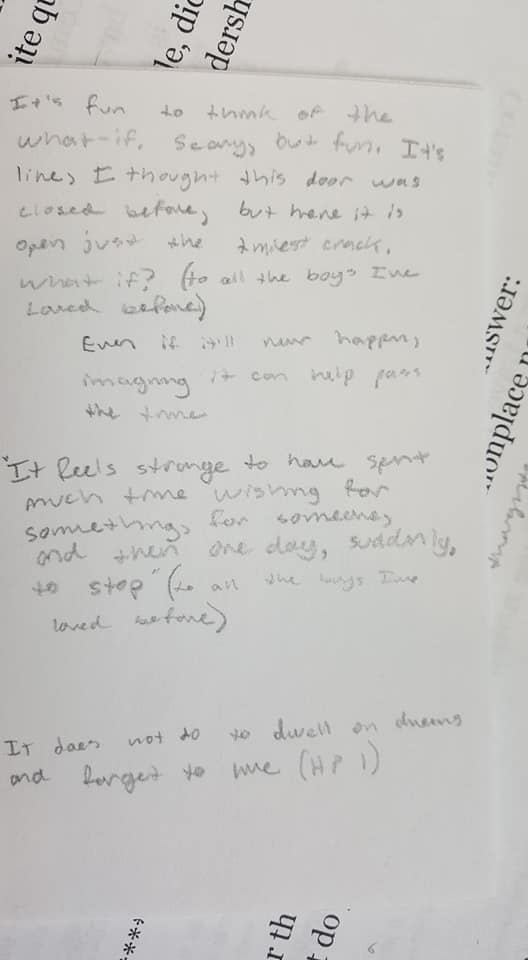 ite qu
le, did
dersh
It's fun to think of the
what-if. Scary, but fun. It's
like, I thought this door was
closed before, but here it is
open just the tiniest crack.
what if? (to all the boys I've
Loved before)
Even if it'll never happen,
imagining it can help pass
the time
"It feels strange to have spent
much time wishing for
something, for someone,
and then one day, suddenly,
to stop" (to all the boys I've
loved before)
It does not do to dwell on dreams
and forget to live (HP 1)
nswer:
onplace
***,
r th
t do